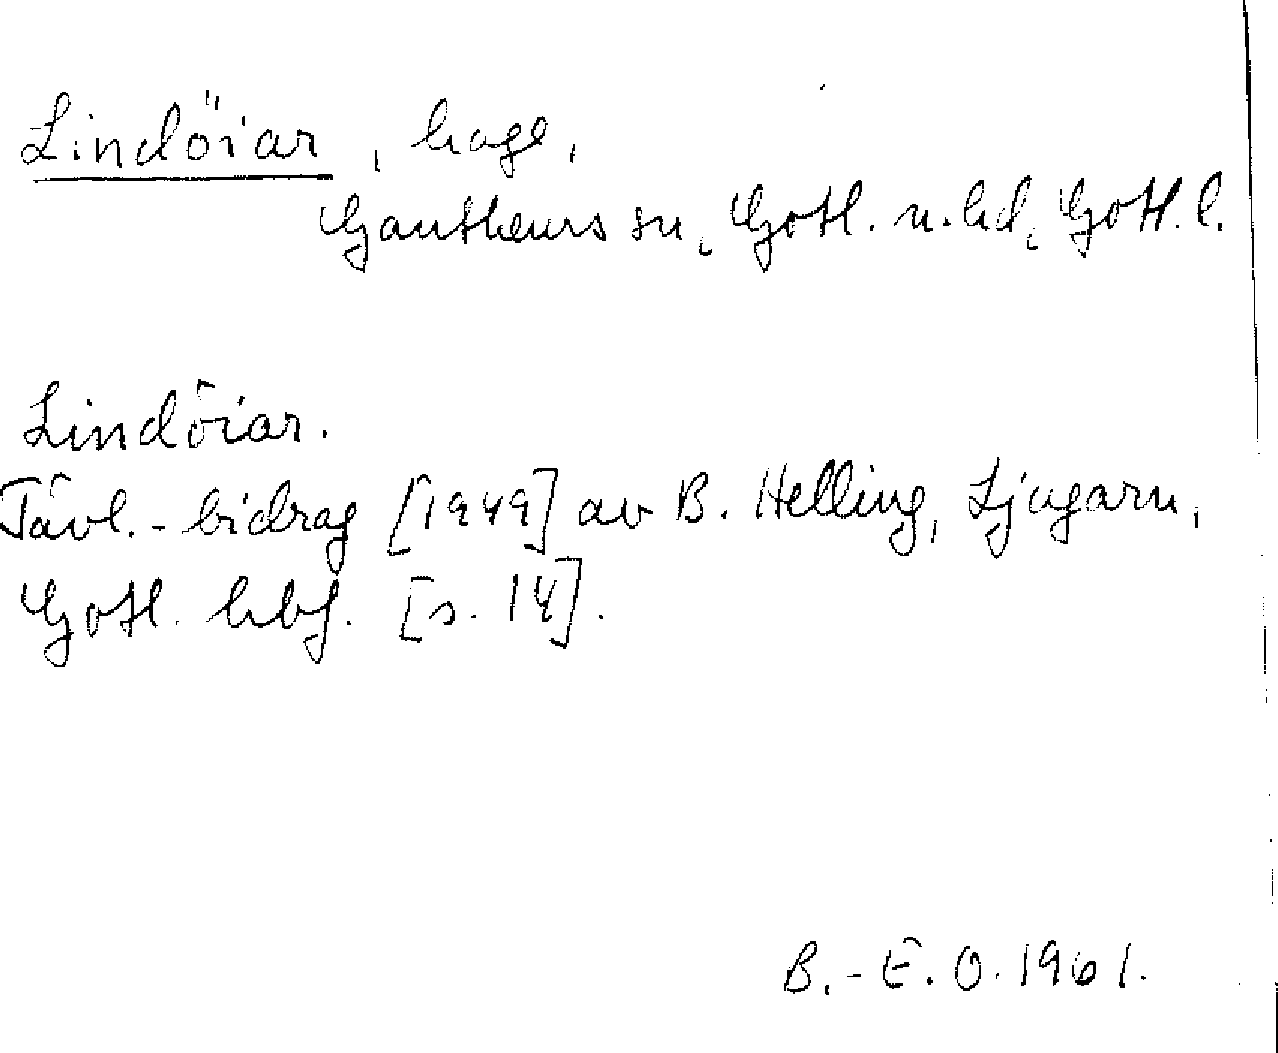 Lindöiar, hage,
Ganthems sn, Gotl. n. hd, Gotl. l.
Lindöiar.
Tävl.-bidrag [1949] av B. Helling, Ljugarn,
Gotl. hbf. [s. 14].
B.-E. O. 1961.